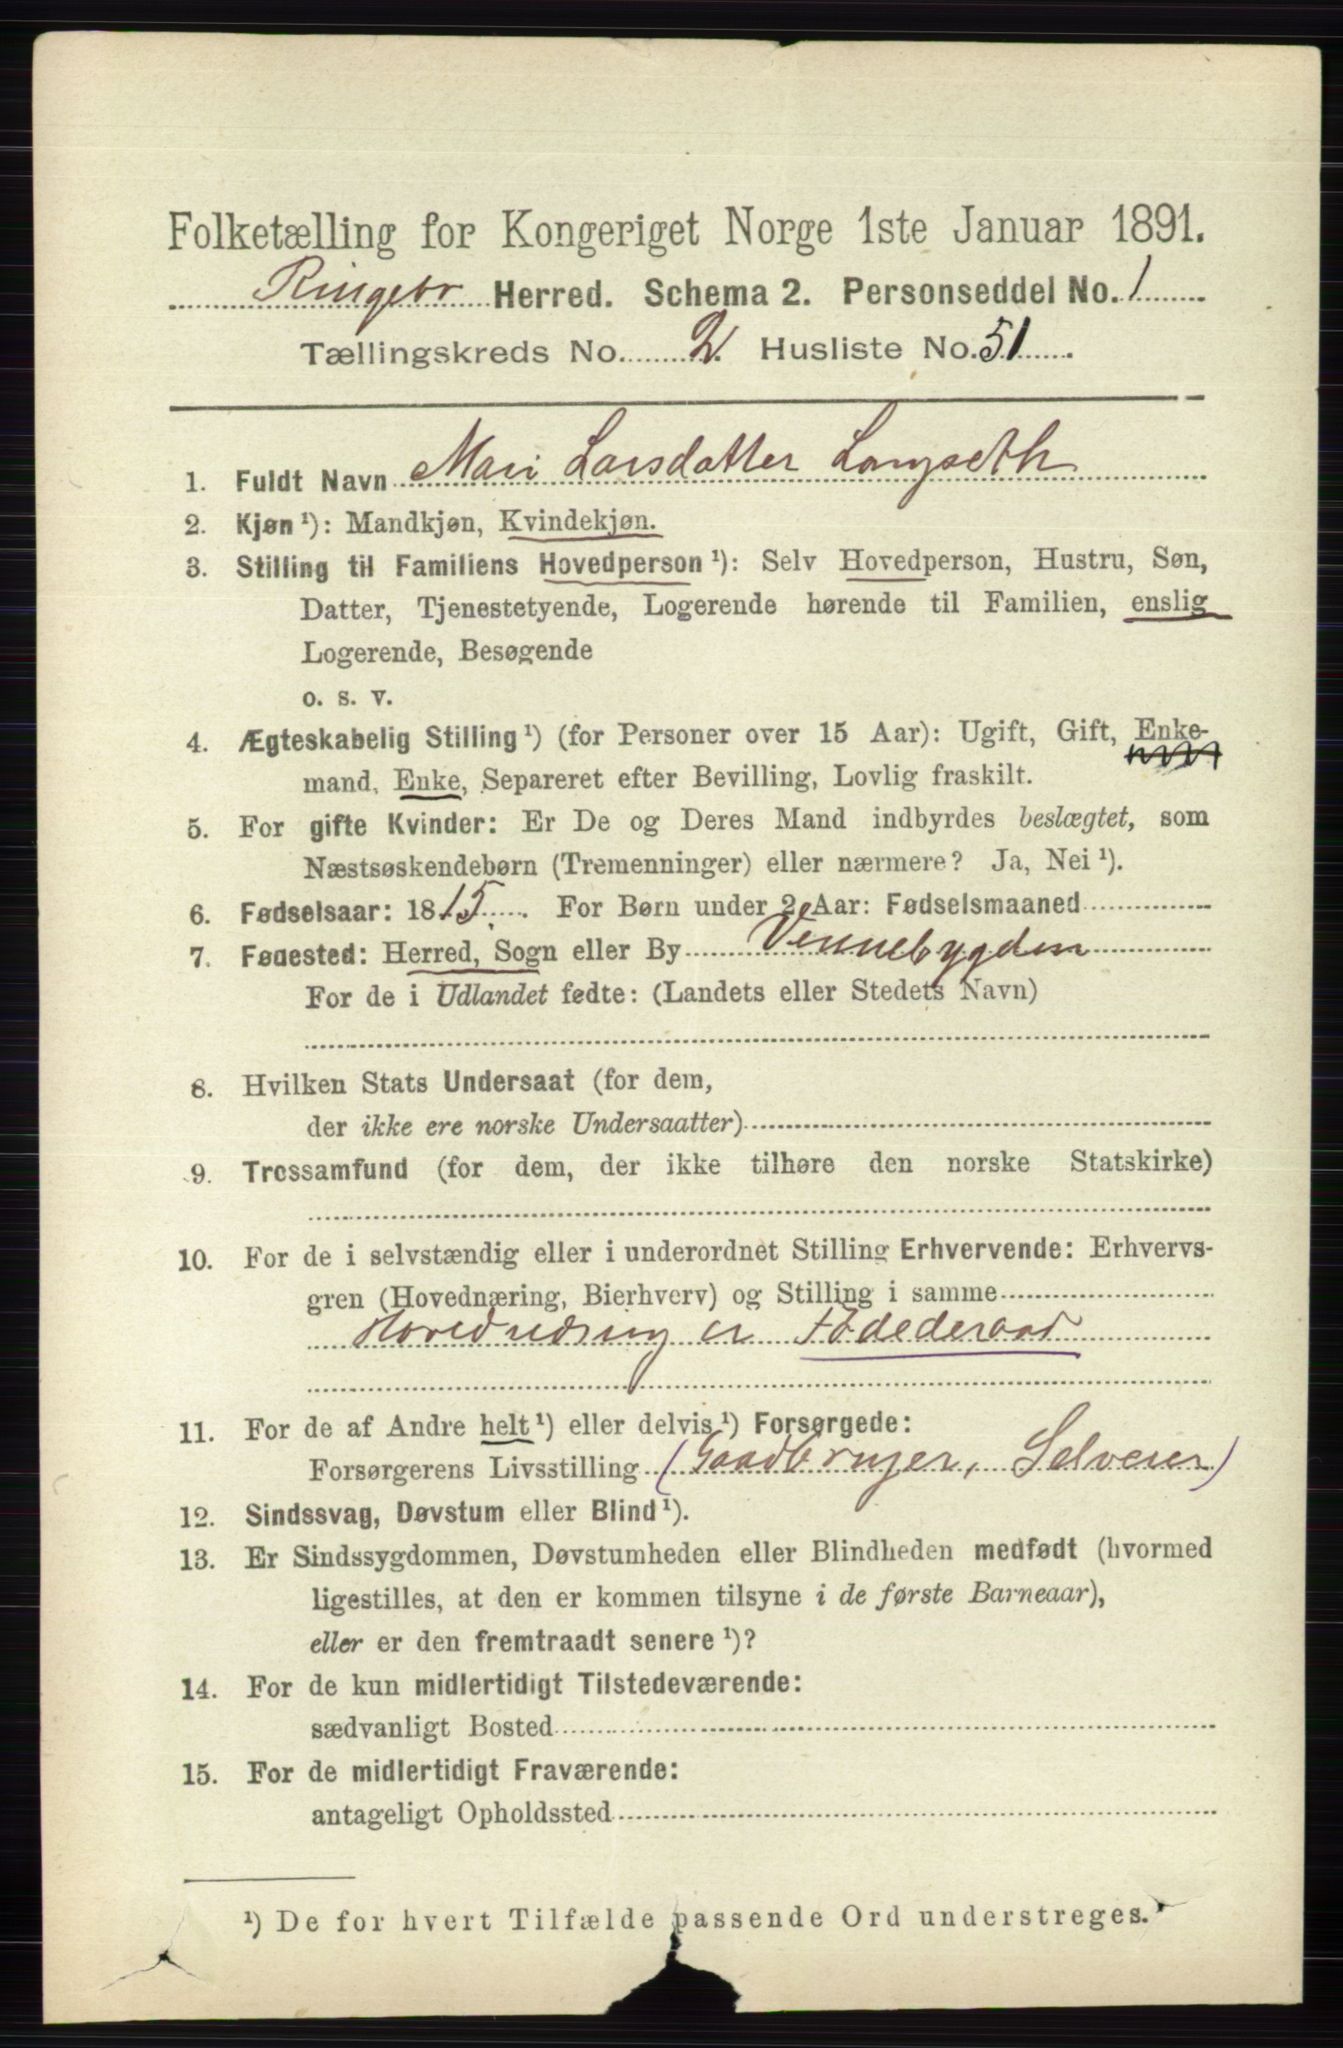 Folketælling for Kongeriget Norge 1ste Januar 1891.
Ringebo Herred. Schema 2. Personseddel No. 1
Tællingskreds No. 2. Husliste No. 51
1. Fuldt Navn Mari Larsdatter Langseth
2. Kjøn ¹): Mandkjøn, Kvindekjøn.
3. Stilling til Familiens Hovedperson ¹): Selv Hovedperson, Hustru, Søn,
Datter, Tjenestetyende, Logerende hørende til Familien, enslig
Logerende, Besøgende
o. s. v.
4. Ægteskabelig Stilling ¹) (for Personer over 15 Aar): Ugift, Gift, Enke-
mand, Enke, Separeret efter Bevilling, Lovlig fraskilt.
5. For gifte Kvinder: Er De og Deres Mand indbyrdes beslægtet, som
Næstsøskendebørn (Tremenninger) eller nærmere? Ja, Nei ¹).
6. Fødselsaar: 1815. For Børn under 2 Aar: Fødselsmaaned
7. Fødested: Herred, Sogn eller By Vennebygden
For de i Udlandet fødte: (Landets eller Stedets Navn)
8. Hvilken Stats Undersaat (for dem,
der ikke ere norske Undersaatter)
9. Trossamfund (for dem, der ikke tilhøre den norske Statskirke)
10. For de i selvstændig eller i underordnet Stilling Erhvervende: Erhvervs-
gren (Hovednæring, Bierhverv) og Stilling i samme
Hovednæring er Føderaad
11. For de af Andre helt ¹) eller delvis ¹) Forsørgede:
Forsørgerens Livsstilling (Gaadbruger, Selveier)
12. Sindssvag, Døvstum eller Blind ¹).
13. Er Sindssygdommen, Døvstumheden eller Blindheden medfødt (hvormed
ligestilles, at den er kommen tilsyne i de første Barneaar),
eller er den fremtraadt senere ¹)?
14. For de kun midlertidigt Tilstedeværende:
sædvanligt Bosted
15. For de midlertidigt Fraværende:
antageligt Opholdssted
¹) De for hvert Tilfælde passende Ord understreges.